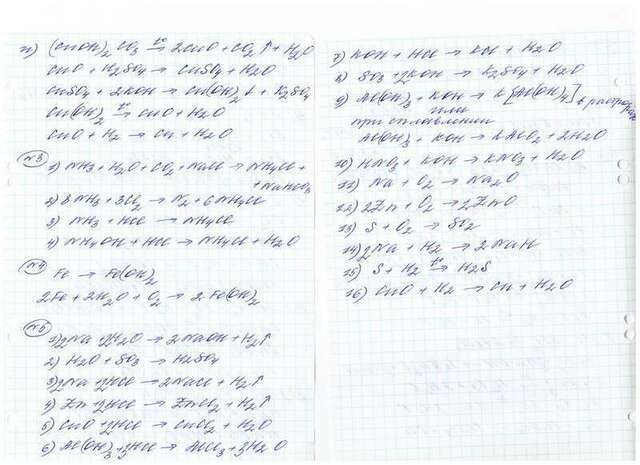 и) (CuOH)₂CO₃ →t° 2CuO + CO₂↑ + H₂O
CuO + H₂SO₄ → CuSO₄ + H₂O
CuSO₄ + 2KOH → Cu(OH)₂↓ + K₂SO₄
Cu(OH)₂ →t° CuO + H₂O
CuO + H₂ → Cu + H₂O
№3
1) NH₃ + H₂O + CO₂ + NaCl → NH₄Cl +
+ NaHCO₃
2) 8NH₃ + 3Cl₂ → N₂ + 6NH₄Cl
3) NH₃ + HCl → NH₄Cl
4) NH₄OH + HCl → NH₄Cl + H₂O
№4
Fe → Fe(OH)₂
2Fe + 2H₂O + O₂ → 2Fe(OH)₂
№5
1) 2Na + 2H₂O → 2NaOH + H₂↑
2) H₂O + SO₃ → H₂SO₄
3) 2Na + 2HCl → 2NaCl + H₂↑
4) Zn + 2HCl → ZnCl₂ + H₂↑
5) CuO + 2HCl → CuCl₂ + H₂O
6) Al(OH)₃ + 3HCl → AlCl₃ + 3H₂O
7) KOH + HCl → KCl + H₂O
8) SO₃ + 2KOH → K₂SO₄ + H₂O
9) Al(OH)₃ + KOH → K[Al(OH)₄] в растворе
или
при сплавлении
Al(OH)₃ + KOH → KAlO₂ + 2H₂O
10) HNO₃ + KOH → KNO₃ + H₂O
11) Na + O₂ → Na₂O
12) 2Zn + O₂ → 2ZnO
13) S + O₂ → SO₂
14) 2Na + H₂ → 2NaH
15) S + H₂ →t° H₂S
16) CuO + H₂ → Cu + H₂O